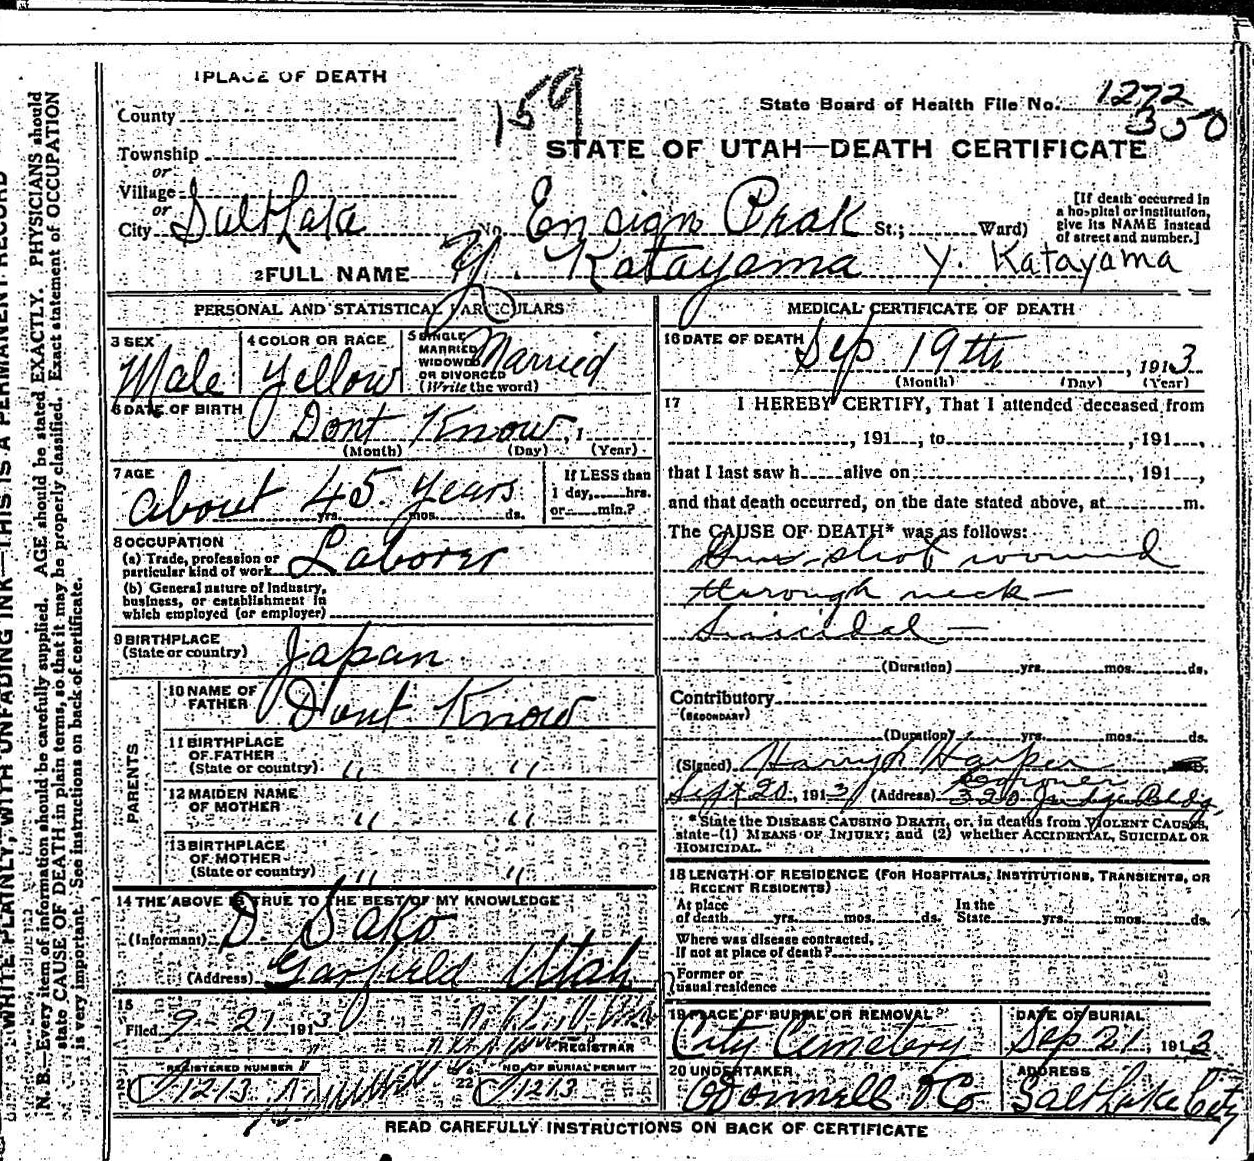 1 PLACE OF DEATH
County
Township
or
Village
or
City Salt Lake No. Ensign Peak St.; Ward)
159
State Board of Health File No. 1272
350
STATE OF UTAH—DEATH CERTIFICATE
[If death occurred in
a hospital or institution,
give its NAME instead
of street and number.]
2 FULL NAME Y. Katayama Y. Katayama
PERSONAL AND STATISTICAL PARTICULARS
3 SEX
Male
4 COLOR OR RACE
Yellow
5 SINGLE
MARRIED
WIDOWED
OR DIVORCED
(Write the word)
Married
6 DATE OF BIRTH
Dont Know, 1
(Month) (Day) (Year)
7 AGE
about 45 years
yrs. mos. ds.
If LESS than
1 day, hrs.
or min.?
8 OCCUPATION
(a) Trade, profession or
particular kind of work Laborer
(b) General nature of industry,
business, or establishment in
which employed (or employer)
9 BIRTHPLACE
(State or country) Japan
PARENTS
10 NAME OF
FATHER Dont Know
11 BIRTHPLACE
OF FATHER
(State or country) " "
12 MAIDEN NAME
OF MOTHER " "
13 BIRTHPLACE
OF MOTHER
(State or country) " "
14 THE ABOVE IS TRUE TO THE BEST OF MY KNOWLEDGE
(Informant) D. Sako
(Address) Garfield Utah
15
Filed 9-21 1913
REGISTRAR
REGISTERED NUMBER
21 1213
22 NO. OF BURIAL PERMIT
1213
MEDICAL CERTIFICATE OF DEATH
16 DATE OF DEATH Sep 19th, 1913
(Month) (Day) (Year)
17 I HEREBY CERTIFY, That I attended deceased from
, 191 , to , 191 ,
that I last saw h alive on , 191 ,
and that death occurred, on the date stated above, at m.
The CAUSE OF DEATH* was as follows:
Gun-shot wound
through neck—
Suicidal—
(Duration) yrs. mos. ds.
Contributory
(SECONDARY)
(Duration) yrs. mos. ds.
(Signed) Harry Harper
Coroner
Sept 20, 1913 (Address) 320 Judge Bldg,
*State the DISEASE CAUSING DEATH, or, in deaths from VIOLENT CAUSES,
state (1) MEANS OF INJURY; and (2) whether ACCIDENTAL, SUICIDAL OR
HOMICIDAL.
18 LENGTH OF RESIDENCE (FOR HOSPITALS, INSTITUTIONS, TRANSIENTS, OR
RECENT RESIDENTS)
At place
of death yrs. mos. ds.
In the
State yrs. mos. ds.
Where was disease contracted,
If not at place of death?
Former or
usual residence
19 PLACE OF BURIAL OR REMOVAL
City Cemetery
DATE OF BURIAL
Sep 21 1913
20 UNDERTAKER
O'Donnell & Co
ADDRESS
Salt Lake City
READ CAREFULLY INSTRUCTIONS ON BACK OF CERTIFICATE
WRITE PLAINLY, WITH UNFADING INK—THIS IS A PERMANENT RECORD
N. B.—Every item of information should be carefully supplied. AGE should be stated EXACTLY. PHYSICIANS should
state CAUSE OF DEATH in plain terms, so that it may be properly classified. Exact statement of OCCUPATION
is very important. See instructions on back of certificate.